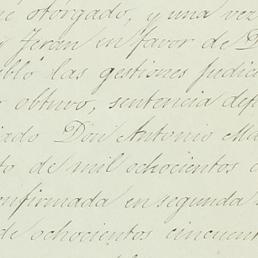 otorgado, y una vez
Jeran en favor de D
bló las gestiones judic
obtuvo, sentencia def
iado Don Antonio Mu
to de mil ochocientos c
onfirmada en segunda
de ochocientos cincuent